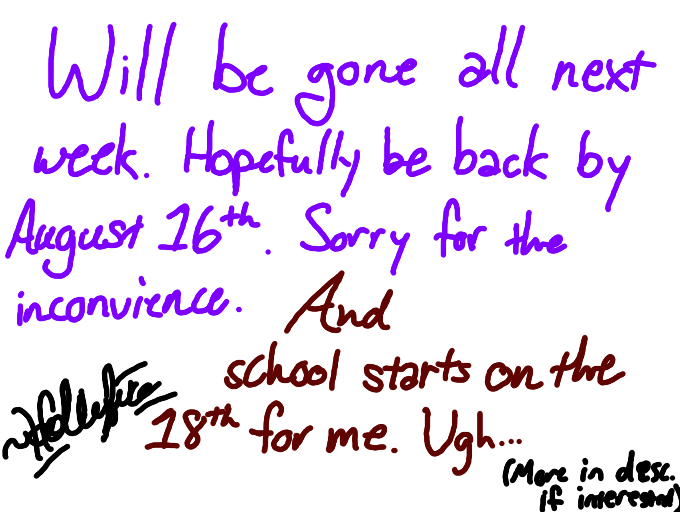 Will be gone all next
week. Hopefully be back by
August 16th. Sorry for the
inconvience.
And
school starts on the
18th for me. Ugh...
(More in desc.
if interested)